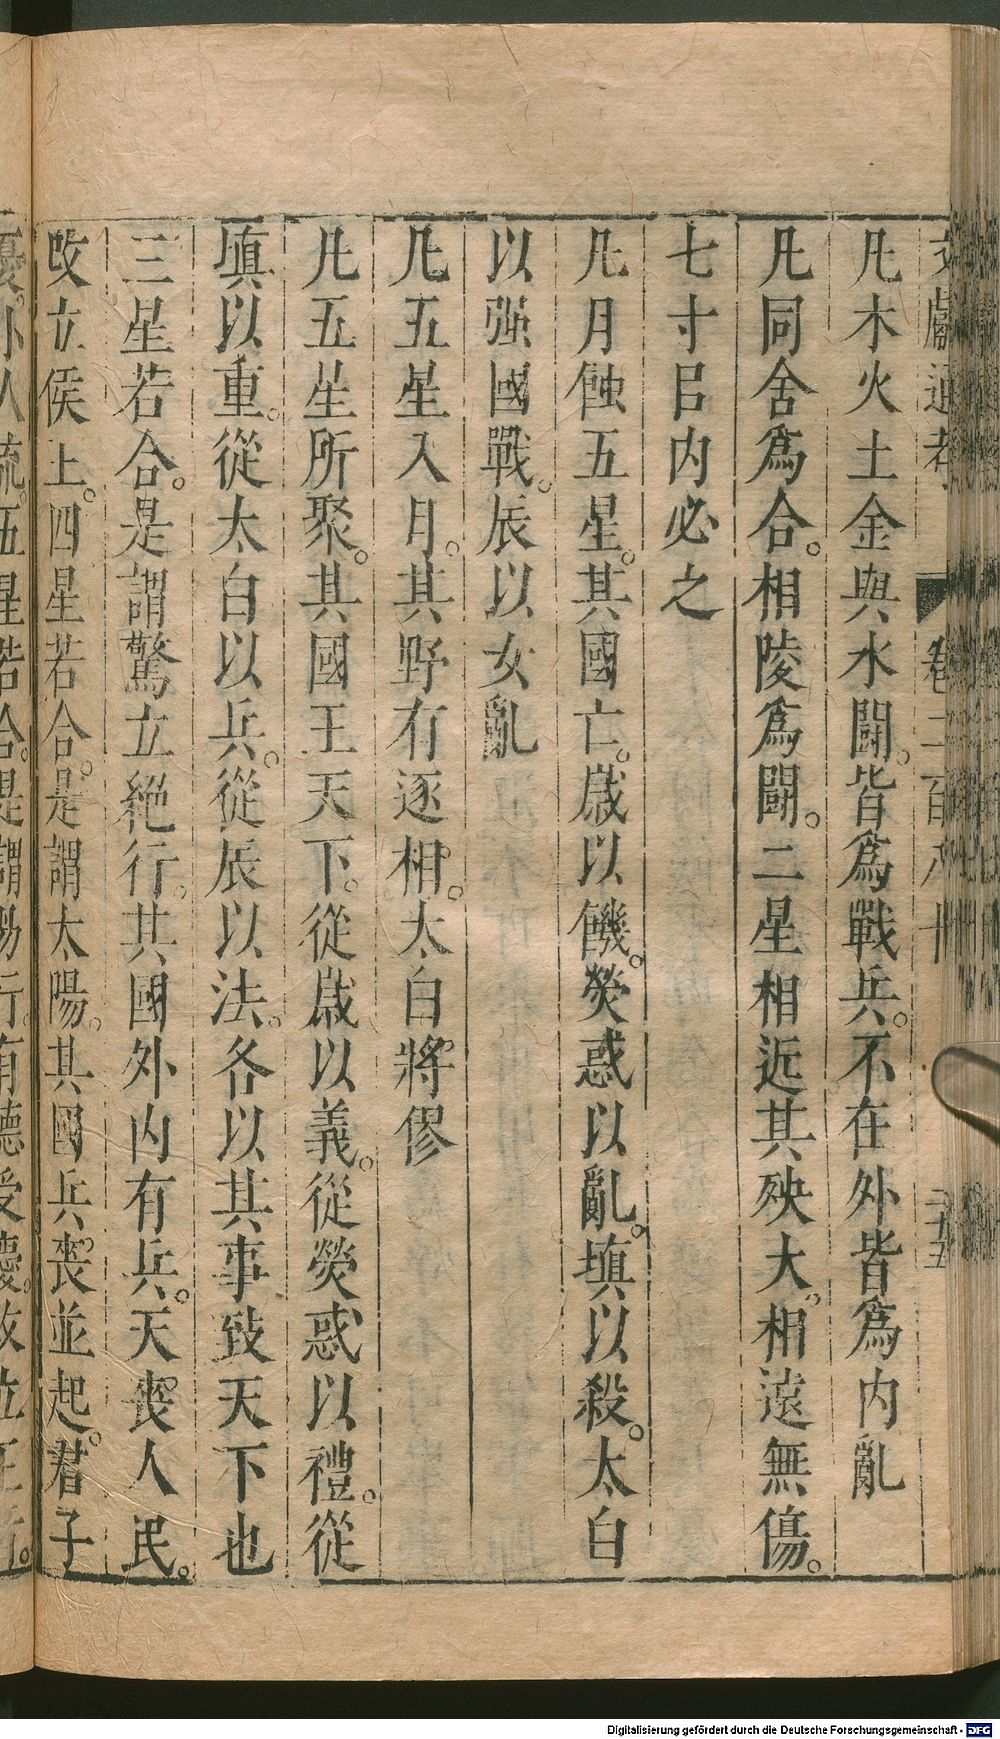 文獻通考 卷二百八十 二十五
凡木火土金與水鬪。皆爲戰兵。不在外皆爲内亂
凡同舍爲合。相陵爲鬪。二星相近其殃大。相遠無傷。
七寸㠯内必之
凡月蝕五星。其國亡。歲以饑。熒惑以亂。塡以殺。太白
以强國戰。辰以女亂
凡五星入月。其野有逐相。太白將僇
凡五星所聚。其國王天下。從歲以義。從熒惑以禮。從
塡以重。從太白以兵。從辰以法。各以其事致天下也
三星若合。是謂驚立絶行。其國外内有兵。天喪人民。
改立侯王。四星若合。是謂太陽。其國兵喪並起。君子
憂。小人流。五星若合。是謂易行。有德受慶。改立王者。
Digitalisierung gefördert durch die Deutsche Forschungsgemeinschaft - DFG